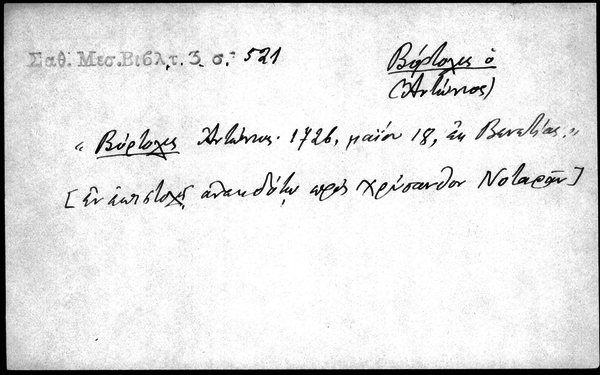 Σαθ. Μεσ. Βιβλ. τ. 3 σ. 521
Βόρτολες ὁ
(Ἀντώνιος)
« Βόρτολες Ἀντώνιος. 1726, μαΐου 18, ἐκ Βενετίας. »
[ ἐν ἐπιστολῇ ἀνεκδότῳ πρὸς Χρύσανθον Νοταρᾶν ]